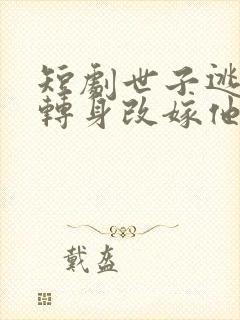 短劇世子逃
轉身改嫁他
戴盔